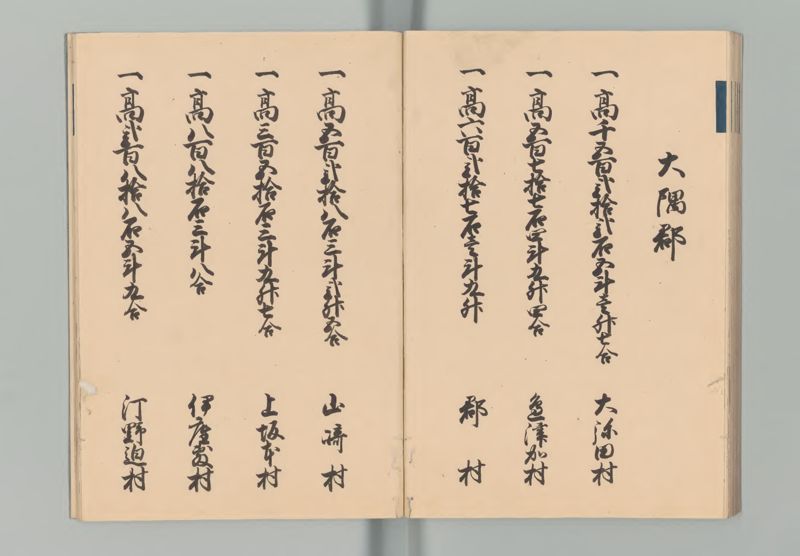 大隅郡
一高千五百弐拾弐石五斗壱升七合 大祢田村
一高五百七拾七石四斗九升四合 津加村
一高六百弐拾七石壱斗九升 郡村
一高五百弐拾八石三斗弐升五合 山崎村
一高三百五拾石三斗九升七合 上坂本村
一高八百八拾石三斗八合 伊座敷村
一高弐百八拾八石五斗九合 汀野迫村